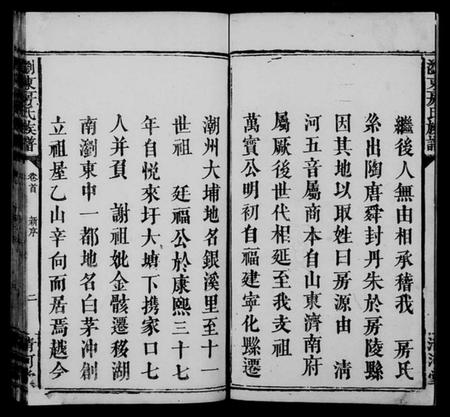 繼後人無由相承稽我 房氏
系出陶唐舜封丹朱於房陵縣
因其地以取姓曰房源由 清
河五音屬商本自山東濟南府
屬厥後世代相延至我支祖
萬寶公明初自福建寧化縣遷
潮州大埔地名銀溪里至十一
世祖 廷福公於康熙三十七
年自悅來圩大塘下携家口七
人并負 謝祖妣金骸遷移湖
南瀏東中一都地名白茅冲創
立祖屋乙山辛向而居焉越今
瀏東房氏族譜 卷首 新序 二